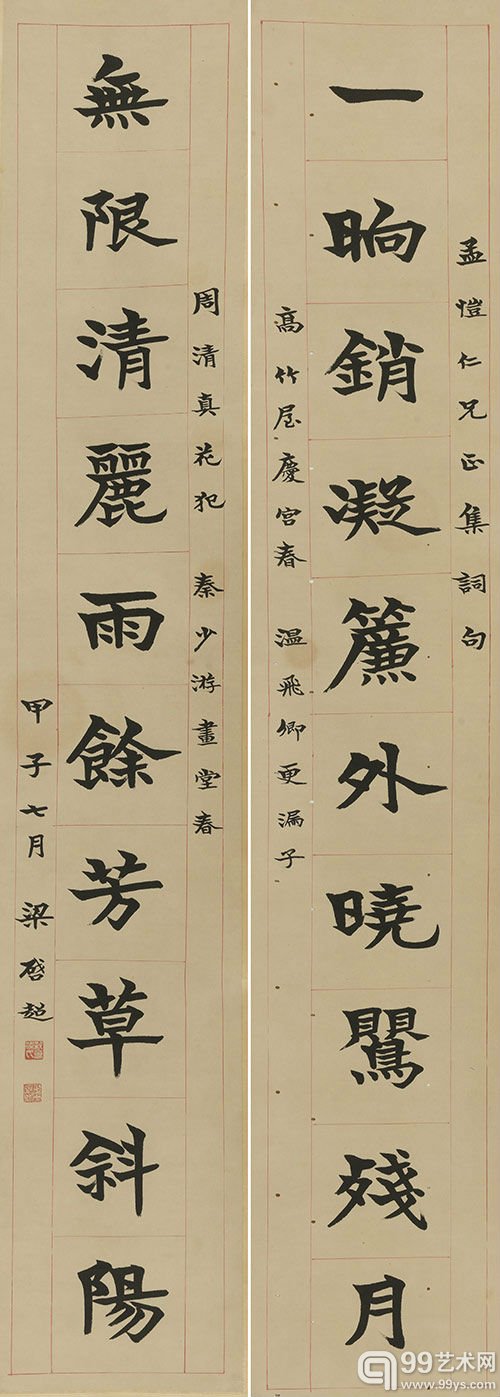 孟愷仁兄正集詞句
一晌銷凝簾外曉鶯殘月
高竹屋慶宮春 温飛卿更漏子
周清真花犯 秦少游畫堂春
無限清麗雨餘芳草斜陽
甲子七月 梁啓超
99艺术网
www.99ys.com